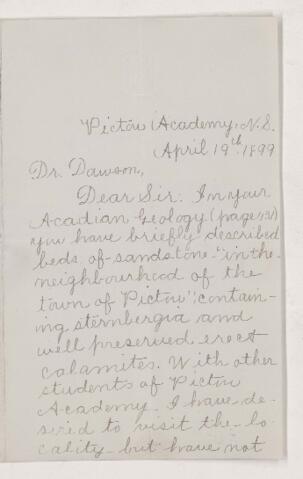 Pictou Academy, N.S.
April 19th 1899
Dr. Dawson,
Dear Sir: In your
Acadian Geology (page
you have briefly described
beds of sandstone "in the
neighbourhood of the
town of Pictou", contain-
ing sternbergia and
well preserved erect
calamites. With other
students of Pictou
Academy I have de-
sired to visit the lo-
cality but have not